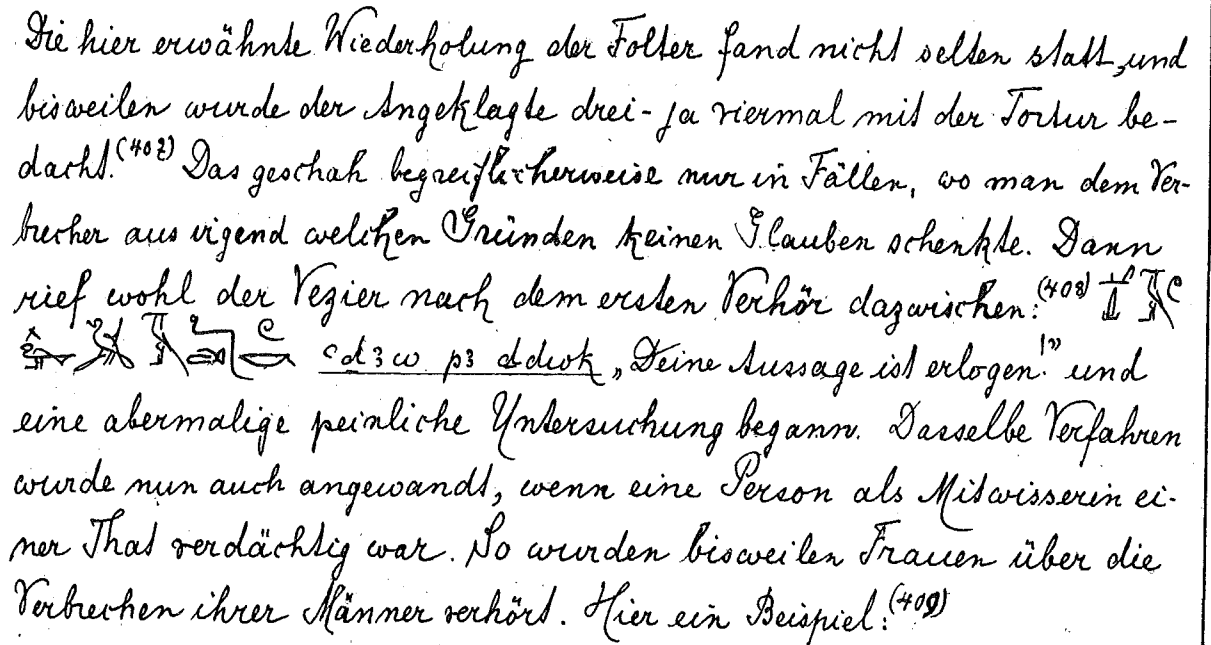 Die hier erwähnte Wiederholung der Folter fand nicht selten statt, und
bisweilen wurde der Angeklagte drei- ja viermal mit der Tortur be-
dacht.(407) Das geschah begreiflicherweise nur in Fällen, wo man dem Ver-
brecher aus irgend welchen Gründen keinen Glauben schenkte. Dann
rief wohl der Vezier nach dem ersten Verhör dazwischen:(408)
ꜥdꜣw pꜣ ddwk „Deine Aussage ist erlogen!” und
eine abermalige peinliche Untersuchung begann. Dasselbe Verfahren
wurde nun auch angewandt, wenn eine Person als Mitwisserin ei-
ner That verdächtig war. So wurden bisweilen Frauen über die
Verbrechen ihrer Männer verhört. Hier ein Beispiel:(409)